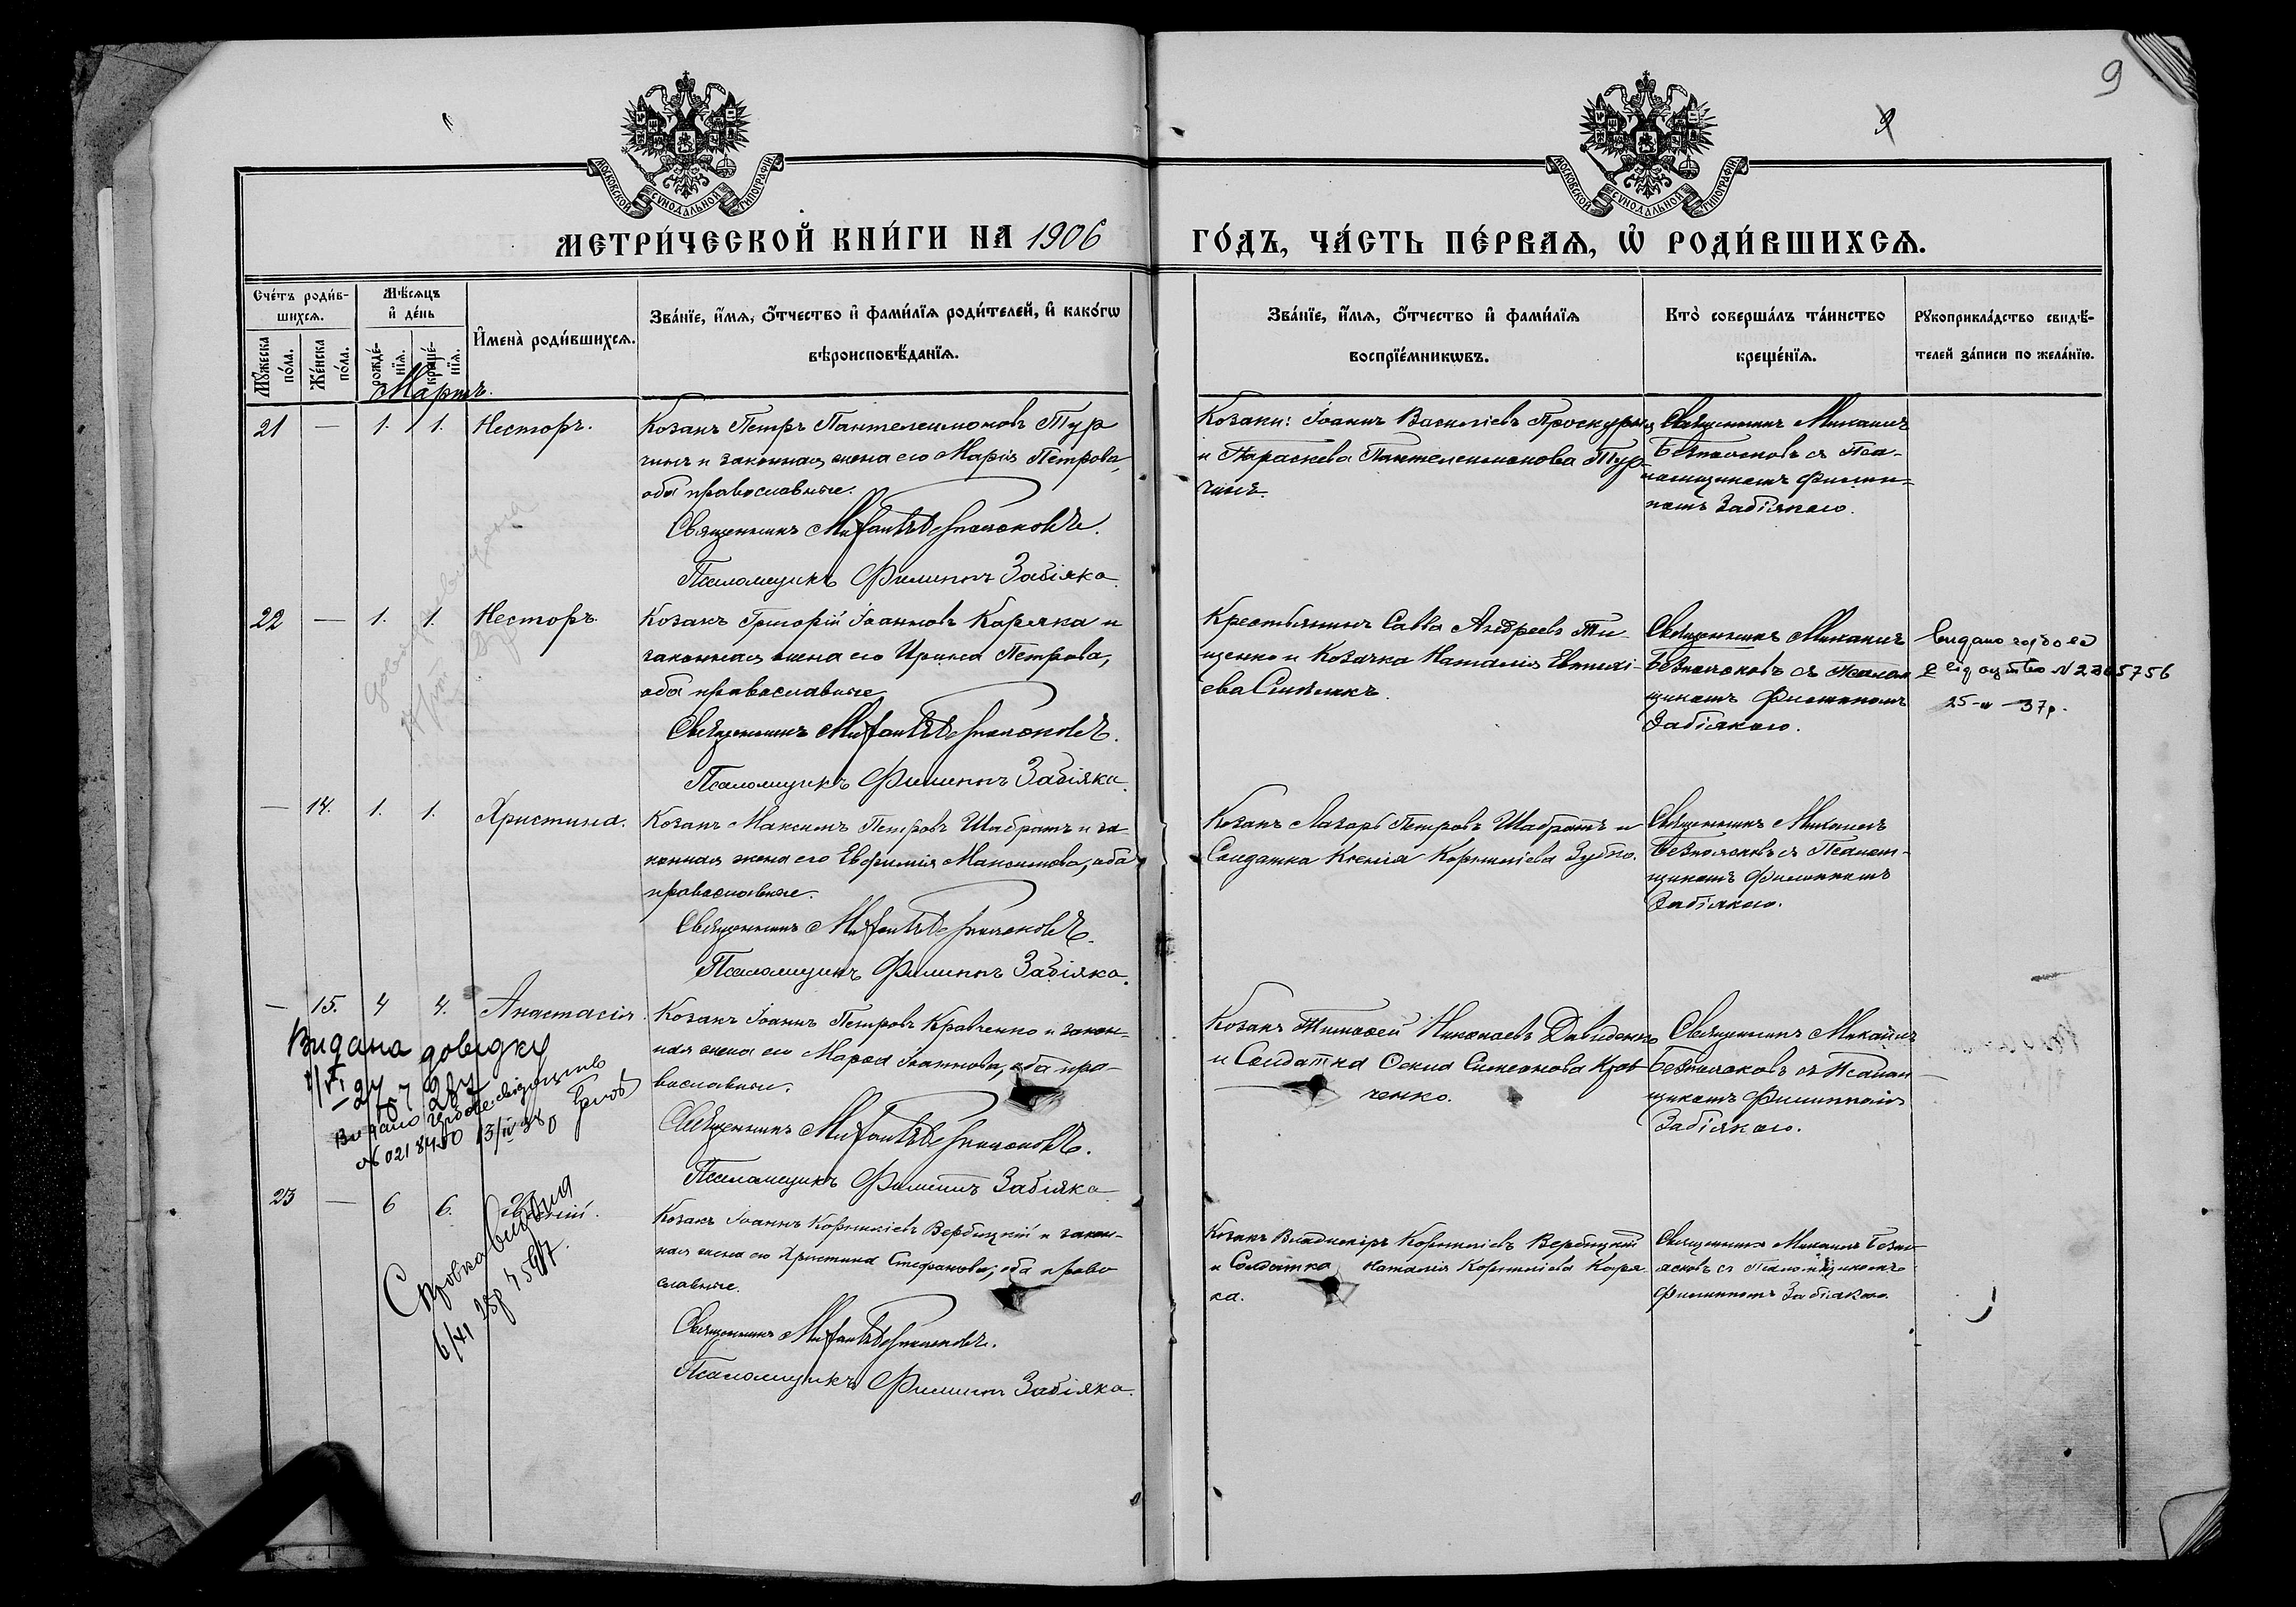 9
9
МОСКОВСКОЙ СУНОДАЛЬНОЙ ТИПОГРАФІИ
МОСКОВСКОЙ СУНОДАЛЬНОЙ ТИПОГРАФІИ
МЕТРИ́ЧЕСКОЙ КНИ́ГИ НА 1906
ГО́ДЪ, ЧА́СТЬ ПЕ́РВАѦ, Ѽ РОДИ́ВШИХСѦ.
Сче́тъ роди́в-
шихсѧ.
Мꙋ́жеска по́ла.
Же́нска по́ла.
Мѣ́сѧцъ
и҆ де́нь
рожде́-нїѧ.
креще́-нїѧ.
И҆мена̀ роди́вшихсѧ.
Зва́нїе, и҆́мѧ, ѻ҆́тчество и҆ фами́лїѧ роди́телей, и҆ како́гѡ
вѣроисповѣ́данїѧ.
Зва́нїе, и҆́мѧ, ѻ҆́тчество и҆ фами́лїѧ
воспрїе́мникѡвъ.
Кто̀ соверша́лъ та́инство
креще́нїѧ.
Рꙋкоприкла́дство свидѣ́-
телей за́писи по жела́нїю.
Мартъ.
21 — 1. 1. Несторъ.
Козакъ Петръ Пантелеимоновъ Тур
чинъ и законная жена его Марія Петрова,
оба православные.
Священникъ Михаилъ Безпоясковъ.
Псаломщикъ Филиппъ Забіяка.
Козаки: Іоаннъ Василіевъ Проскурня
и Параскева Пантелеимонова Тур-
чинъ.
Священникъ Михаилъ
Безпоясковъ съ Пса-
ломщикомъ Филип-
помъ Забіякою.
22 — 1. 1. Несторъ.
Козакъ Григорій Іоанновъ Каряка и
законная жена его Ирина Петрова,
оба православные
Священникъ Михаилъ Безпоясковъ.
Псаломщикъ Филиппъ Забіяка.
Крестьянинъ Савва Андреевъ Ти-
щенко и Козачка Наталія Евтихі-
ева
Священникъ Михаилъ
Безпоясковъ съ Псалом
щикомъ Филиппомъ
Забіякою.
N 2365756
37р.
— 14. 1. 1. Христина.
Козакъ Максимъ Петровъ Шабратъ и за
конная жена его Евфимія Максимова, оба
православные.
Священникъ Михаилъ Безпоясковъ.
Псаломщикъ Филиппъ Забіяка.
Козакъ Лазарь Петровъ Шабратъ и
Солдатка Ксенія Корниліева Зубко.
Священникъ Михаилъ
Безпоясковъ съ Псалом-
щикомъ Филиппомъ
Забіякою.
— 15. 4 4. Анастасія.
Козакъ Іоаннъ Петровъ Кравченко и закон-
ная жена его Марѳа Іоаннова, оба пра-
вославные.
Священникъ Михаилъ Безпоясковъ.
Псаломщикъ Филиппъ Забіяка
Козакъ Тимофей Николаевъ Давиденко
и Солдатка Симеонова Крав
ченко.
Священникъ Михаилъ
Безпоясковъ съ Псалом
щикомъ Филиппомъ
Забіякою.
Видана довідку
Видано свідоцтво
№ 0218450 13/IV 38
23 — 6 6.
Козакъ Іоаннъ Корниліевъ Вербицкій и закон-
ная жена его Христина Стефанова, оба право
славные.
Священникъ Михаилъ Безпоясковъ.
Псаломщикъ Филиппъ Забіяка.
Козакъ Владиміръ Корниліевъ Вербицкій
и Солдатка Наталія Корниліева Каря-
ка.
Священникъ Михаилъ Безпо
ясковъ съ Псаломщикомъ
Филиппомъ Забіякою.
Справка видана